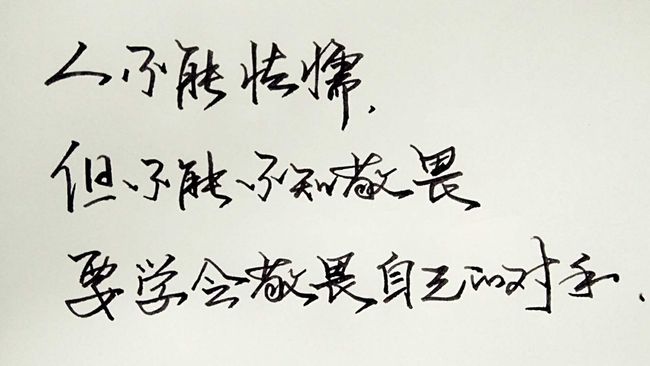 人不能怯懦，
但不能不知敬畏
要学会敬畏自己的对手．